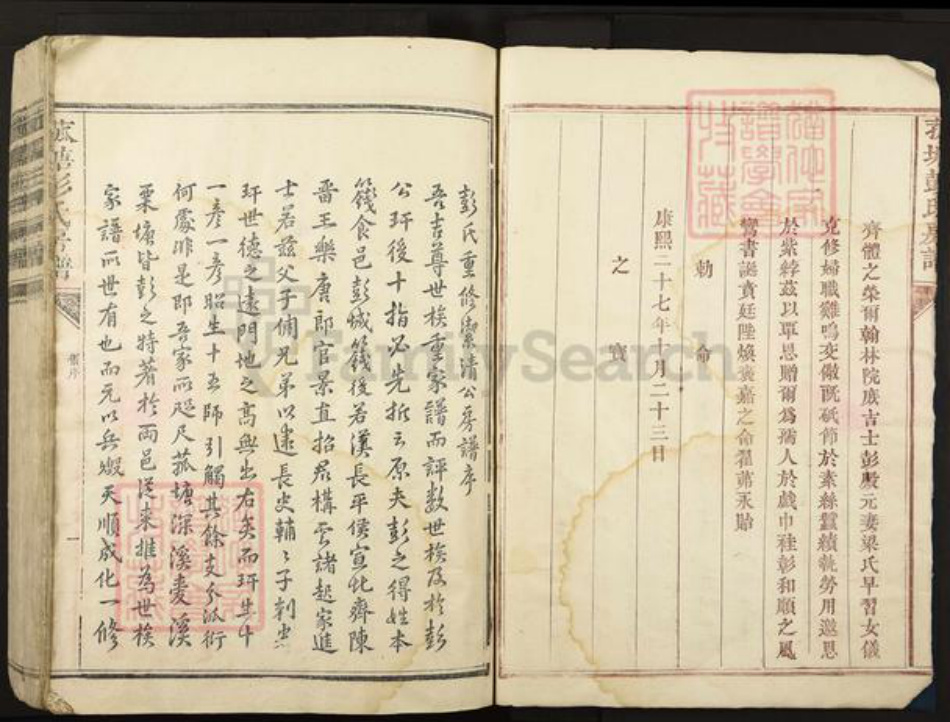 齊體之榮爾翰林院庶吉士彭殿元妻梁氏早習女儀
克修婦職雞鳴交儆既砥節於素絲蠶績執勞用邀恩
於紫綍茲以覃恩贈爾為孺人於戲巾袿彰和順之風
鸞書誕賁廷陛煥褒嘉之命翟茀永貽
康熙二十七年十月二十三日
勅命
之寶
荷塘彭氏房譜
彭氏重修潔清公房譜序
吾吉尊世族重家譜而評數世族及於彭
公玕後十指必先推云原夫彭之得姓本
籛食邑彭城籛後若漢長平侯宣仳齊陳
晉王樂唐郎官景直招君構雲諸起家進
士若茲父子倜兄弟以逮長史輔輔子刺史
玕世德之遠門地之高無出右矣而玕生
一彥一彥昭生十五師引觸其餘支分派衍
何處非是即吾家而咫尺菰塘深溪麦溪
栗塘皆彭之特著於兩邑從來推為世族
家譜所世有也而元以兵燬天順成化一修
舊序
一
FamilySearch